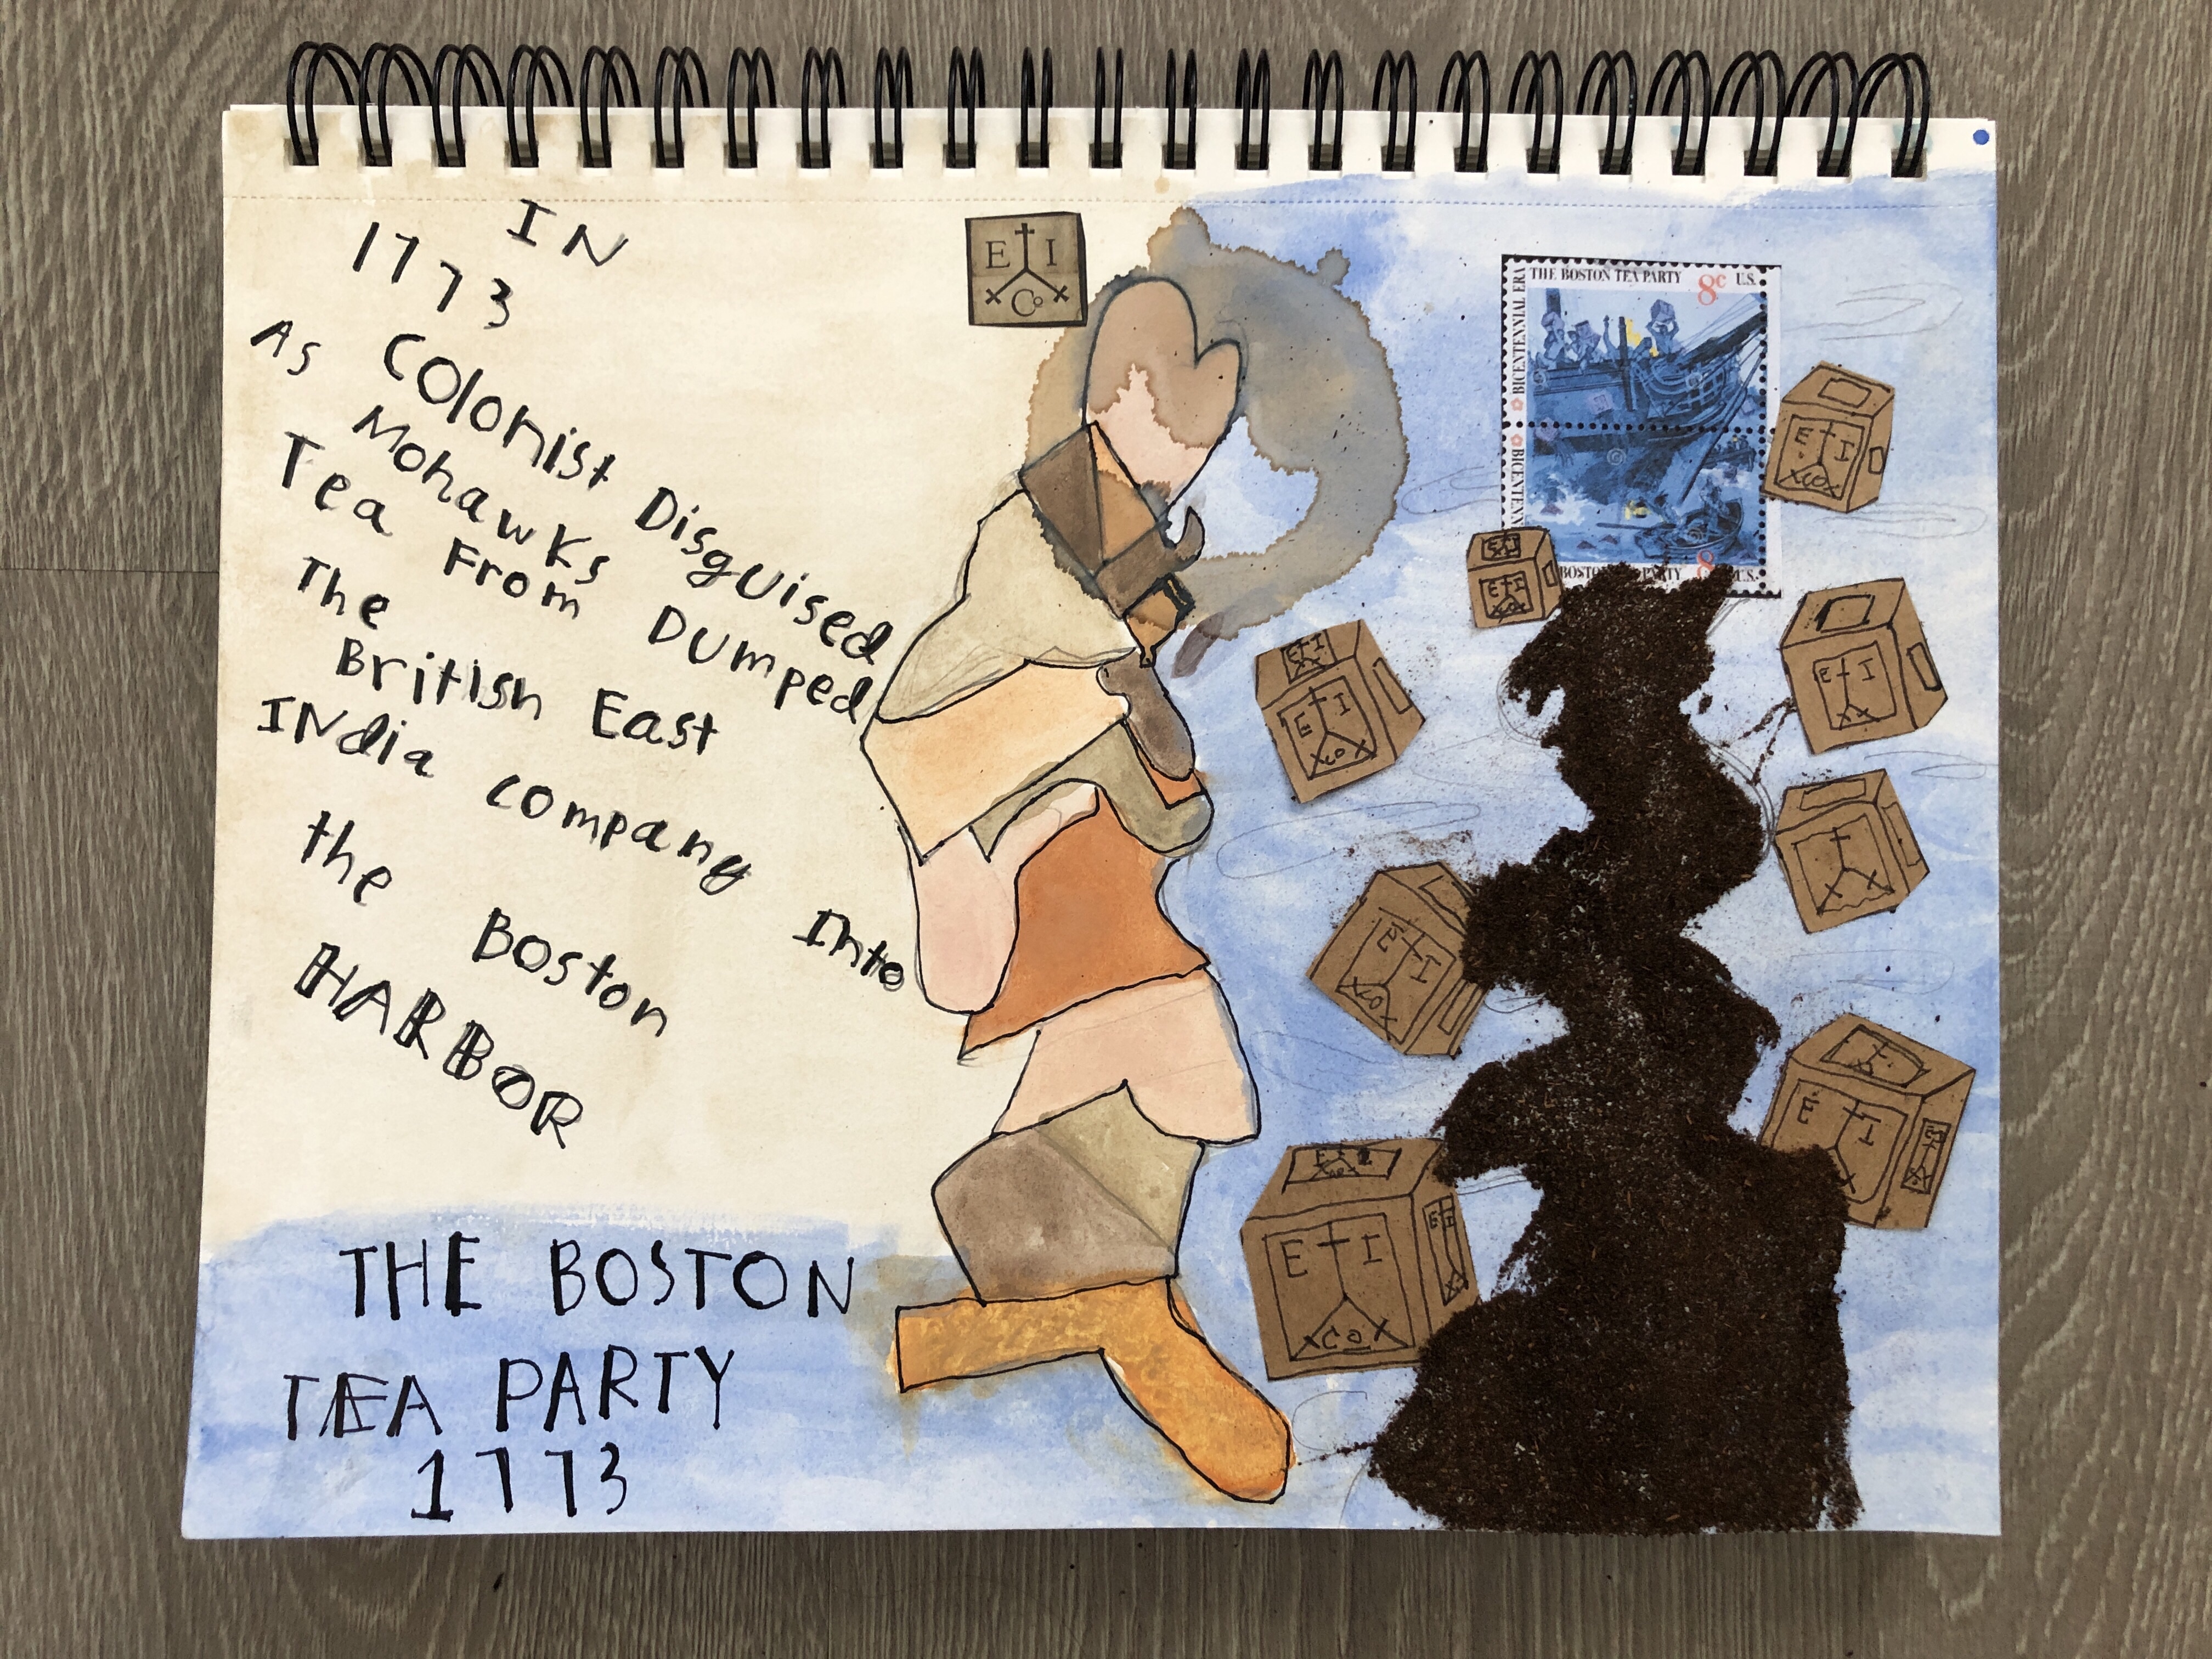 IN
1773
Colonist Disguised
As Mohawks Dumped
Tea From
The British East
India company Into
the Boston
HARBOR
THE BOSTON
TEA PARTY
1773
E I
Co
THE BOSTON TEA PARTY 8c U.S.
BICENTENNIAL ERA
BICENTENN
BOSTON PARTY 8 U.S.
E I
Co
E I
E I
Co
E I
Co
E I
E I
Co
E I
E I
E I
Co
E I